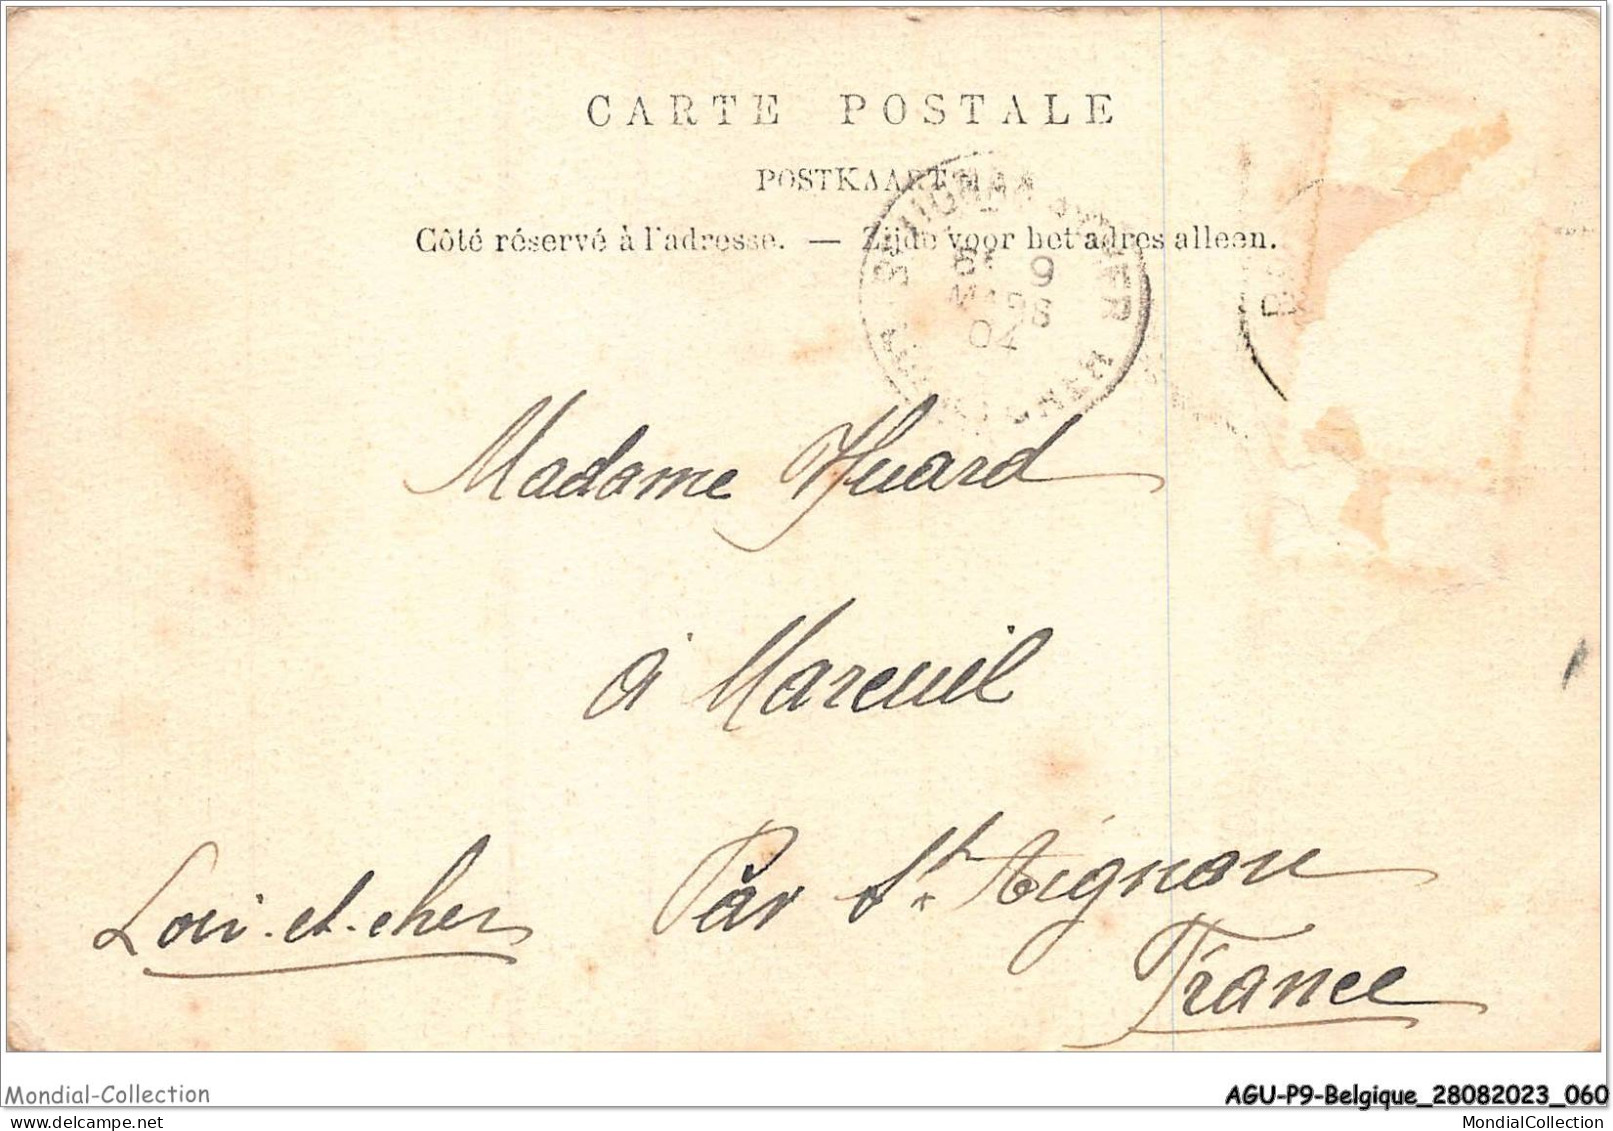 CARTE POSTALE
POSTKAART
Côté réservé à l'adresse. — Zijde voor het adres alleen.
9
MARS
04
Madame Huard
à Mareuil
Par St. Aignan
Loir-et-cher
France
Mondial-Collection
AGU-P9-Belgique_28082023_060
delcampe.net
MondialCollection